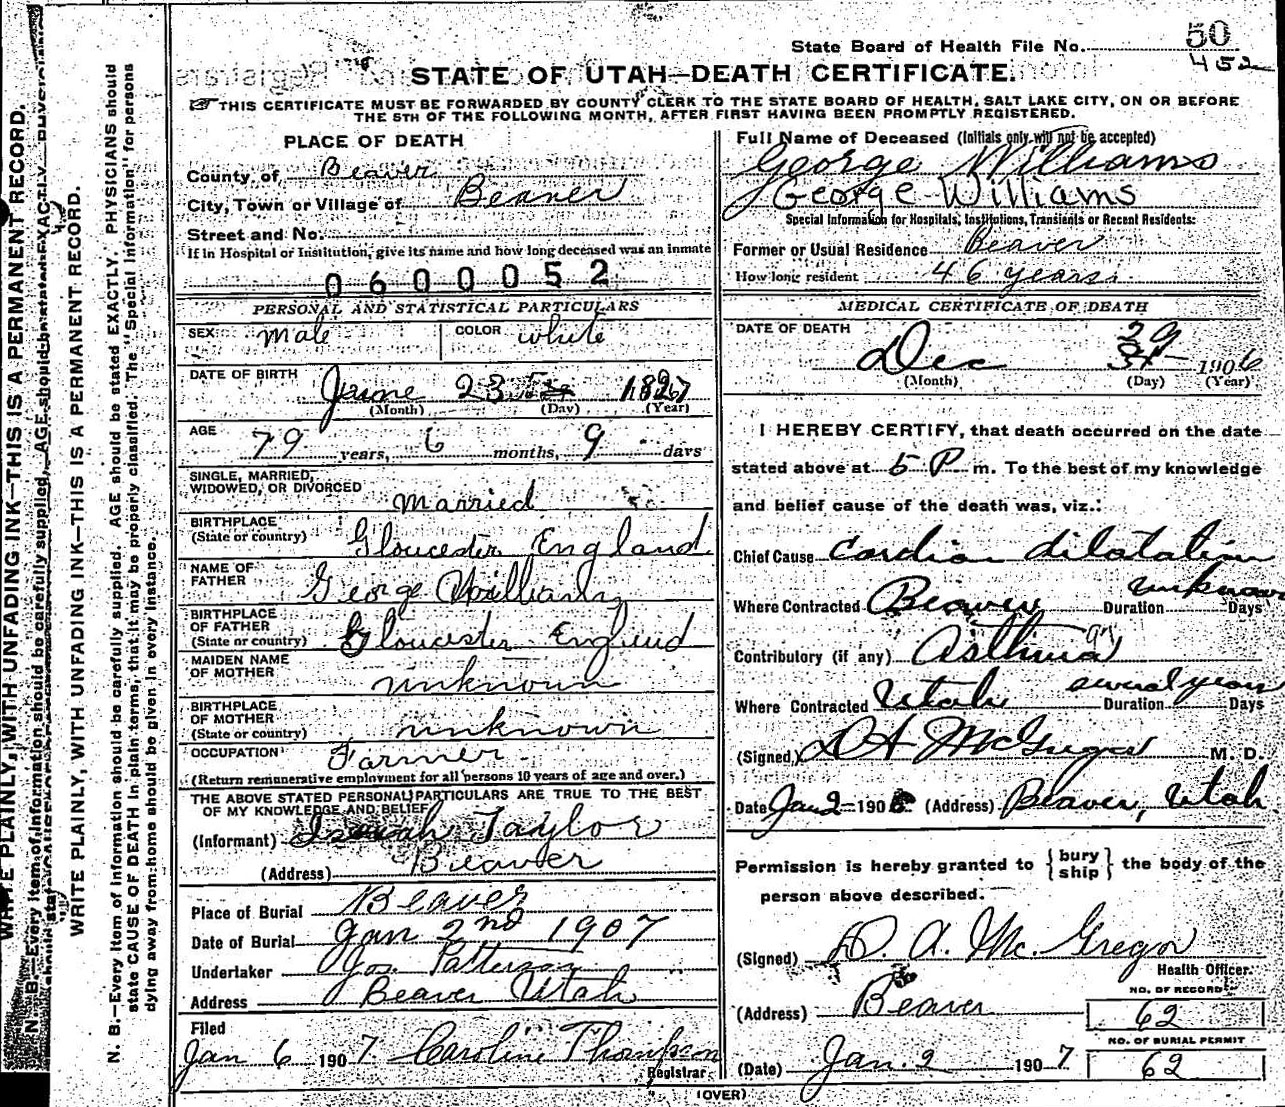 WRITE PLAINLY, WITH UNFADING INK—THIS IS A PERMANENT RECORD.
N. B.—Every item of information should be carefully supplied. AGE should be stated EXACTLY.
WRITE PLAINLY, WITH UNFADING INK—THIS IS A PERMANENT RECORD.
N. B.—Every item of information should be carefully supplied. AGE should be stated EXACTLY. PHYSICIANS should
state CAUSE OF DEATH in plain terms, that it may be properly classified. The "Special Information" for persons
dying away from home should be given in every instance.
State Board of Health File No. 50
452
STATE OF UTAH—DEATH CERTIFICATE.
THIS CERTIFICATE MUST BE FORWARDED BY COUNTY CLERK TO THE STATE BOARD OF HEALTH, SALT LAKE CITY, ON OR BEFORE
THE 5TH OF THE FOLLOWING MONTH, AFTER FIRST HAVING BEEN PROMPTLY REGISTERED.
PLACE OF DEATH
County of Beaver
City, Town or Village of Beaver
Street and No.
If in Hospital or Institution, give its name and how long deceased was an inmate
0600052
PERSONAL AND STATISTICAL PARTICULARS
SEX male COLOR white
DATE OF BIRTH June 23 1827
(Month) (Day) (Year)
AGE 79 years, 6 months, 9 days
SINGLE, MARRIED,
WIDOWED, OR DIVORCED married
BIRTHPLACE
(State or country) Gloucester England
NAME OF
FATHER George Williams
BIRTHPLACE
OF FATHER
(State or country) Gloucester England
MAIDEN NAME
OF MOTHER unknown
BIRTHPLACE
OF MOTHER
(State or country) unknown
OCCUPATION Farmer
(Return remunerative employment for all persons 10 years of age and over.)
THE ABOVE STATED PERSONAL PARTICULARS ARE TRUE TO THE BEST
OF MY KNOWLEDGE AND BELIEF
(Informant) Taylor
(Address) Beaver
Place of Burial Beaver
Date of Burial Jan 2nd 1907
Undertaker Jos. Patterson
Address Beaver Utah
Filed
Jan 6 1907 Caroline Thompson
Registrar
Full Name of Deceased (Initials only will not be accepted)
George Williams
George Williams
Special Information for Hospitals, Institutions, Transients or Recent Residents:
Former or Usual Residence Beaver
How long resident 46 years
MEDICAL CERTIFICATE OF DEATH
DATE OF DEATH
29
Dec 31 1906
(Month) (Day) (Year)
I HEREBY CERTIFY, that death occurred on the date
stated above at 5 P m. To the best of my knowledge
and belief cause of the death was, viz.:
Chief Cause Cardiac dilatation
Where Contracted Beaver Duration unknown Days
Contributory (if any) Asthma
Where Contracted Utah Duration several years Days
(Signed) D A McGregor M. D.
Date Jan 2 190 (Address) Beaver, Utah
Permission is hereby granted to { bury ship } the body of the
person above described.
(Signed) D. A. McGregor
Health Officer.
(Address) Beaver
NO. OF RECORD
62
NO. OF BURIAL PERMIT
62
(Date) Jan. 2 1907
(OVER)